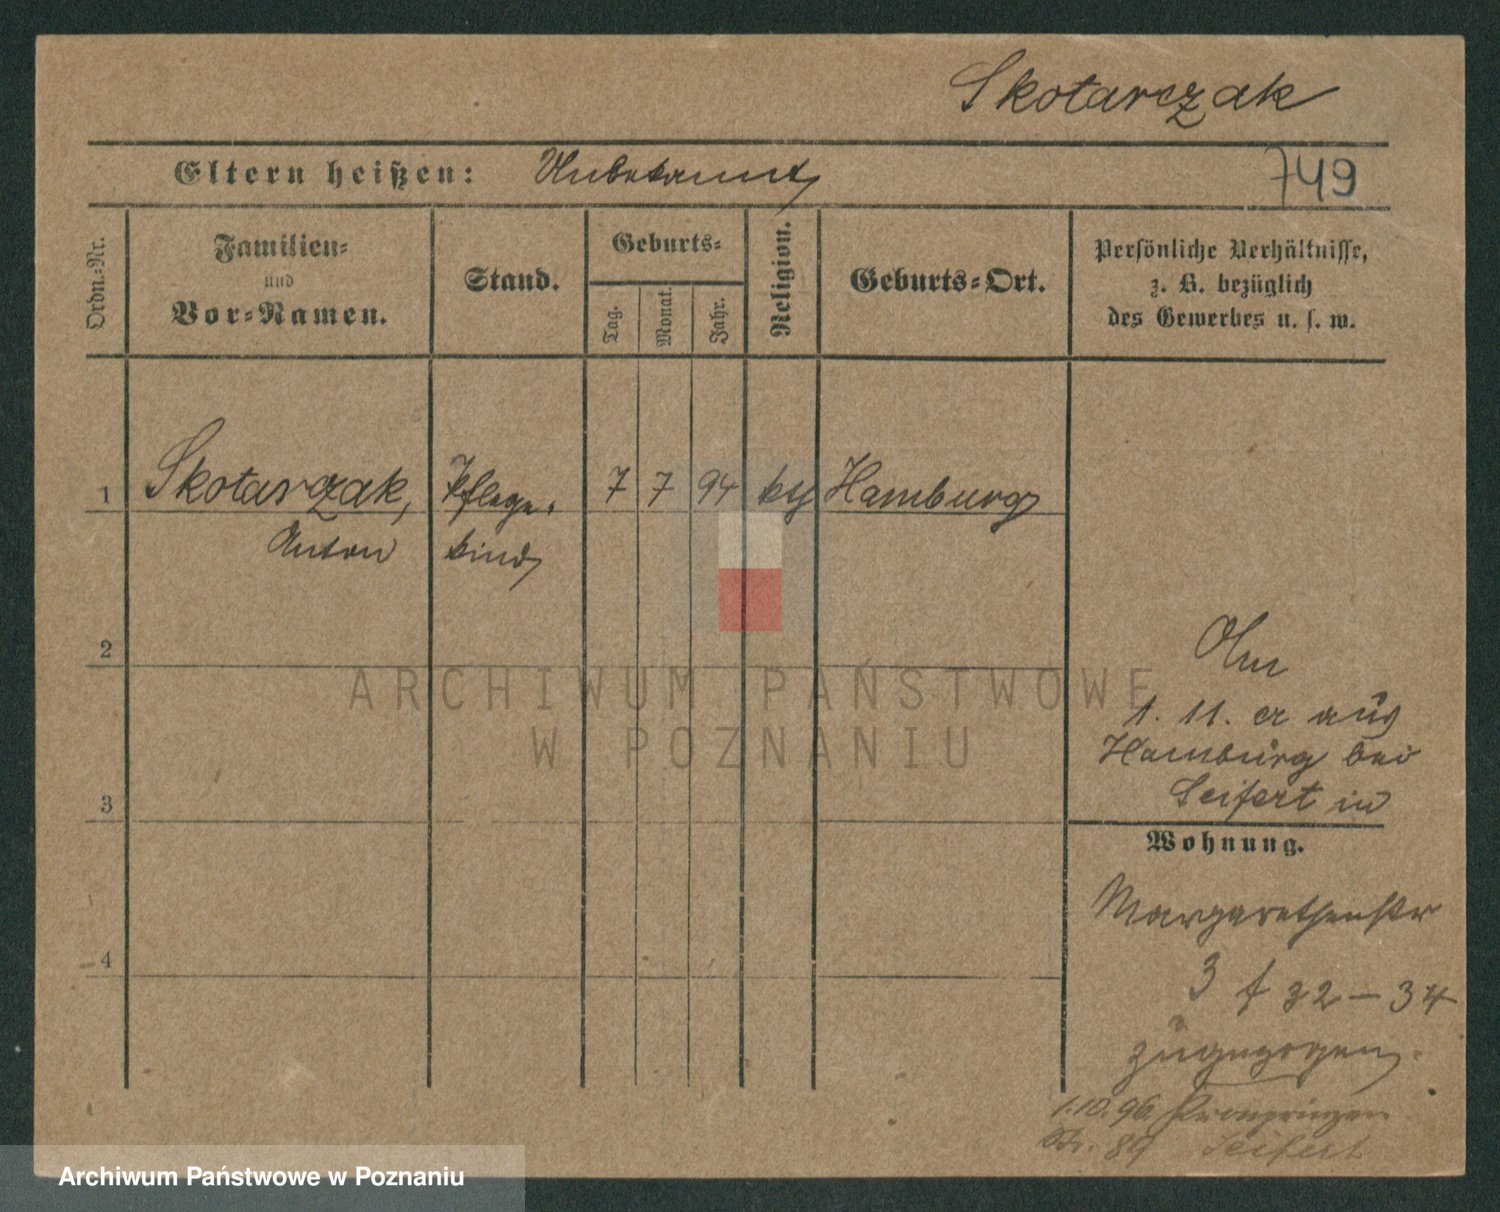 Skotarczak
Eltern heißen: Unbekannt
749
Ordn.-Nr.
Familien-
und
Vor-Namen.
Stand.
Geburts-
Tag.
Monat.
Jahr.
Religion.
Geburts-Ort.
Persönliche Verhältnisse,
z. B. bezüglich
des Gewerbes u. s. w.
1 Skotarczak, Pflege- 7 7 94 kth Hamburg
Anton kind
2
3
4
1. 11. cr aus
Hamburg bei
Seifert in
Wohnung.
Margarethenstr
3 f 32-34
zugezogen.
1.10.96 Kronprinzen
Str. 89 Seifert
ARCHIWUM PAŃSTWOWE
W POZNANIU
Archiwum Państwowe w Poznaniu